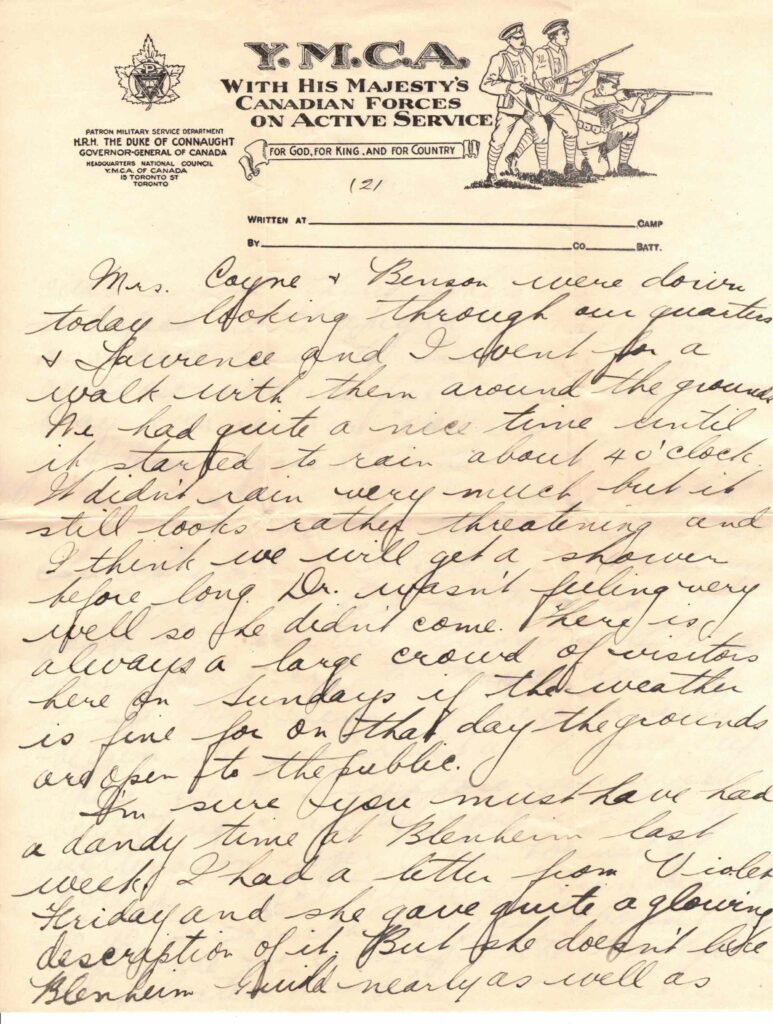 Y.M.C.A.
WITH HIS MAJESTY'S
CANADIAN FORCES
ON ACTIVE SERVICE
FOR GOD, FOR KING, AND FOR COUNTRY
PATRON MILITARY SERVICE DEPARTMENT
H.R.H. THE DUKE OF CONNAUGHT
GOVERNOR-GENERAL OF CANADA
HEADQUARTERS NATIONAL COUNCIL
Y.M.C.A. OF CANADA
15 TORONTO ST
TORONTO
(2)
WRITTEN AT CAMP
BY CO. BATT.
Mrs. Coyne & Benson were down
today looking through our quarters
& Lawrence and I went for a
walk with them around the grounds
We had quite a nice time until
it started to rain about 4 o'clock.
It didn't rain very much but it
still looks rather threatening and
I think we will get a shower
before long. Dr. wasn't feeling very
well so he didn't come. There is
always a large crowd of visitors
here on Sundays if the weather
is fine for on that day the grounds
are open to the public.
I'm sure you must have had
a dandy time at Blenheim last
week. I had a letter from Violet
Friday and she gave quite a glowing
description of it. But she doesn't like
Blenheim Guild nearly as well as